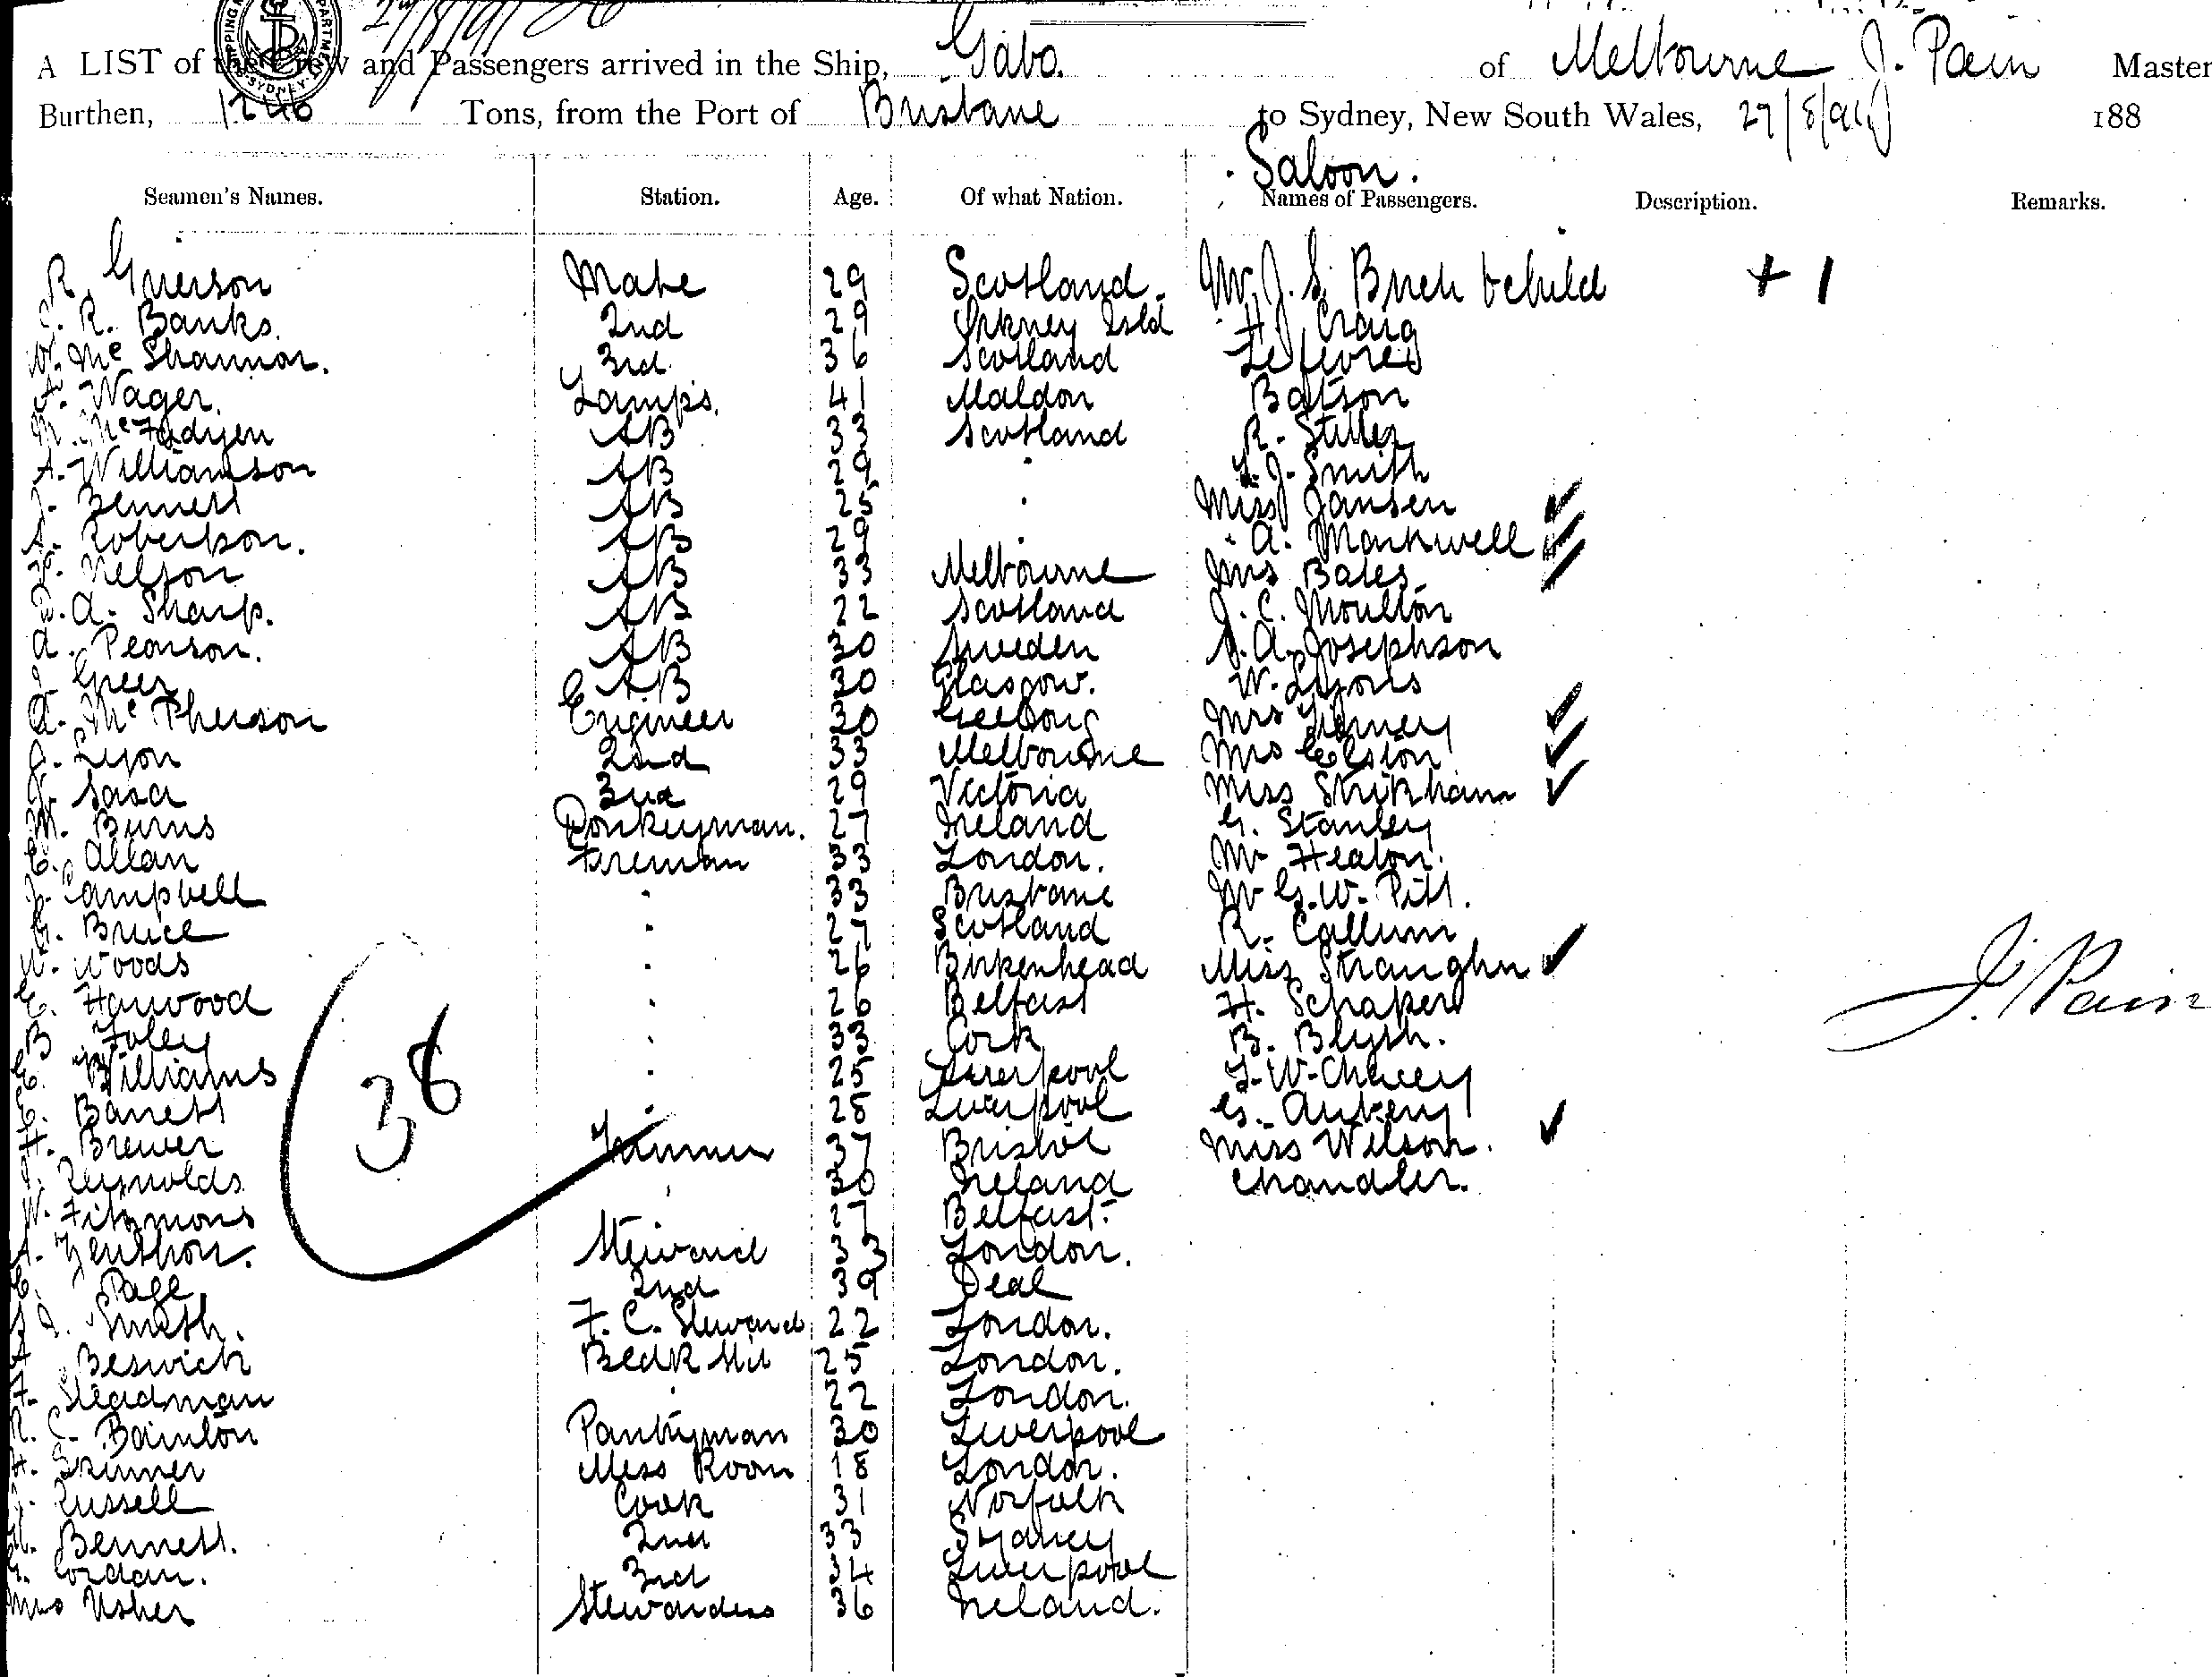 A LIST of the Crew and Passengers arrived in the Ship, Gabo. of Melbourne J. Pain Master
Burthen, 1246 Tons, from the Port of Brisbane to Sydney, New South Wales, 27/8/96 188
Saloon.
Seamen's Names. Station. Age. Of what Nation. Names of Passengers. Description. Remarks.
R. Grierson Mate 29 Scotland Mr. J. S. & child + 1
J. R. Banks. 2nd 29 Orkney Isld H. J. Craig
W. Mc Shannon. 3rd 36 Scotland Lefevre
A. Wager. Lamps. 41 Maldon Batson
M. McFadyen AB 33 Scotland R. Stiller
A. Williamson AB 29 " L. J. Smith
J. Bennett AB 25 " Miss Jansen ✓
A. Robertson. AB 29 " A. Markwell ✓
Nelson AB 33 Melbourne Mrs Bates ✓
D. A. Sharp. AB 22 Scotland J. C. Moulton
A. Pearson. AB 30 Sweden J. A. Josephson
J. Greer AB 30 Glasgow. W. Lyons
A. Mc Pherson Engineer 30 Geelong Mrs ✓
A. Lyon 2nd 33 Melbourne Mrs Elston ✓
3rd 29 Victoria Miss ✓
M. Burns Donkeyman. 27 Ireland G. Stanley
C. Allan Fireman 33 London. Mr Heaton.
J. Campbell " 33 Brisbane Mr G. W. Pitt.
G. Bruce " 27 Scotland R. Callum
W. Woods " 26 Birkenhead Miss Straughn ✓
E. Harwood " 26 Belfast H. Schaper
B Foley " 33 Cork B. Blyth.
E. Williams " 25 Liverpool
C. Barrett " 28 Liverpool G.
H. Brewer Trimmer 37 Bristol Miss Wilson. ✓
J. Reynolds " 30 Ireland Chandler.
W. Fitzmons " 27 Belfast.
A. Steward 33 London.
C. Page 2nd 39 Deal
J. Smith. F. C. Steward 22 London.
A Beswick BedR Std 25 London.
F. Steadman " 22 London.
R. C. Bainton Pantryman 30 Liverpool
H. Skinner Mess Room 18 London.
Russell Cook 31 Norfolk
Bennett. 2nd 33 Sydney
G. Jordan. 3rd 34 Liverpool
Mrs Usher Stewardess 36 Ireland.
38
J. Pain